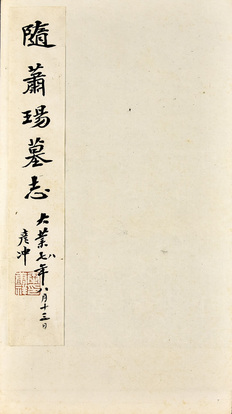 隨蕭瑒墓志
大業七年八月十三日
彥沖